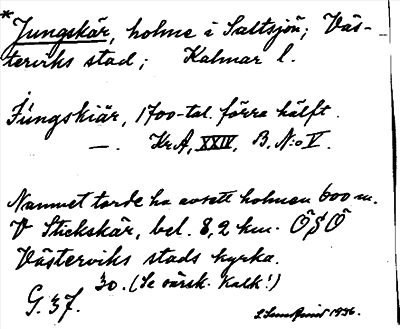 *Jungskär, holme i Saltsjön; Väs-
terviks stad; Kalmar l.
Júngskiär, 1700-tal. förra hälft.
—. Kr.A, XXIV, B. N:o V.
Namnet torde ha avsett holmen 600 m.
V Stickskär, bel. 8,2 km. ÖSÖ
Västerviks stads kyrka.
30. (Se särsk. Kalk!)
G. 37.
1936.